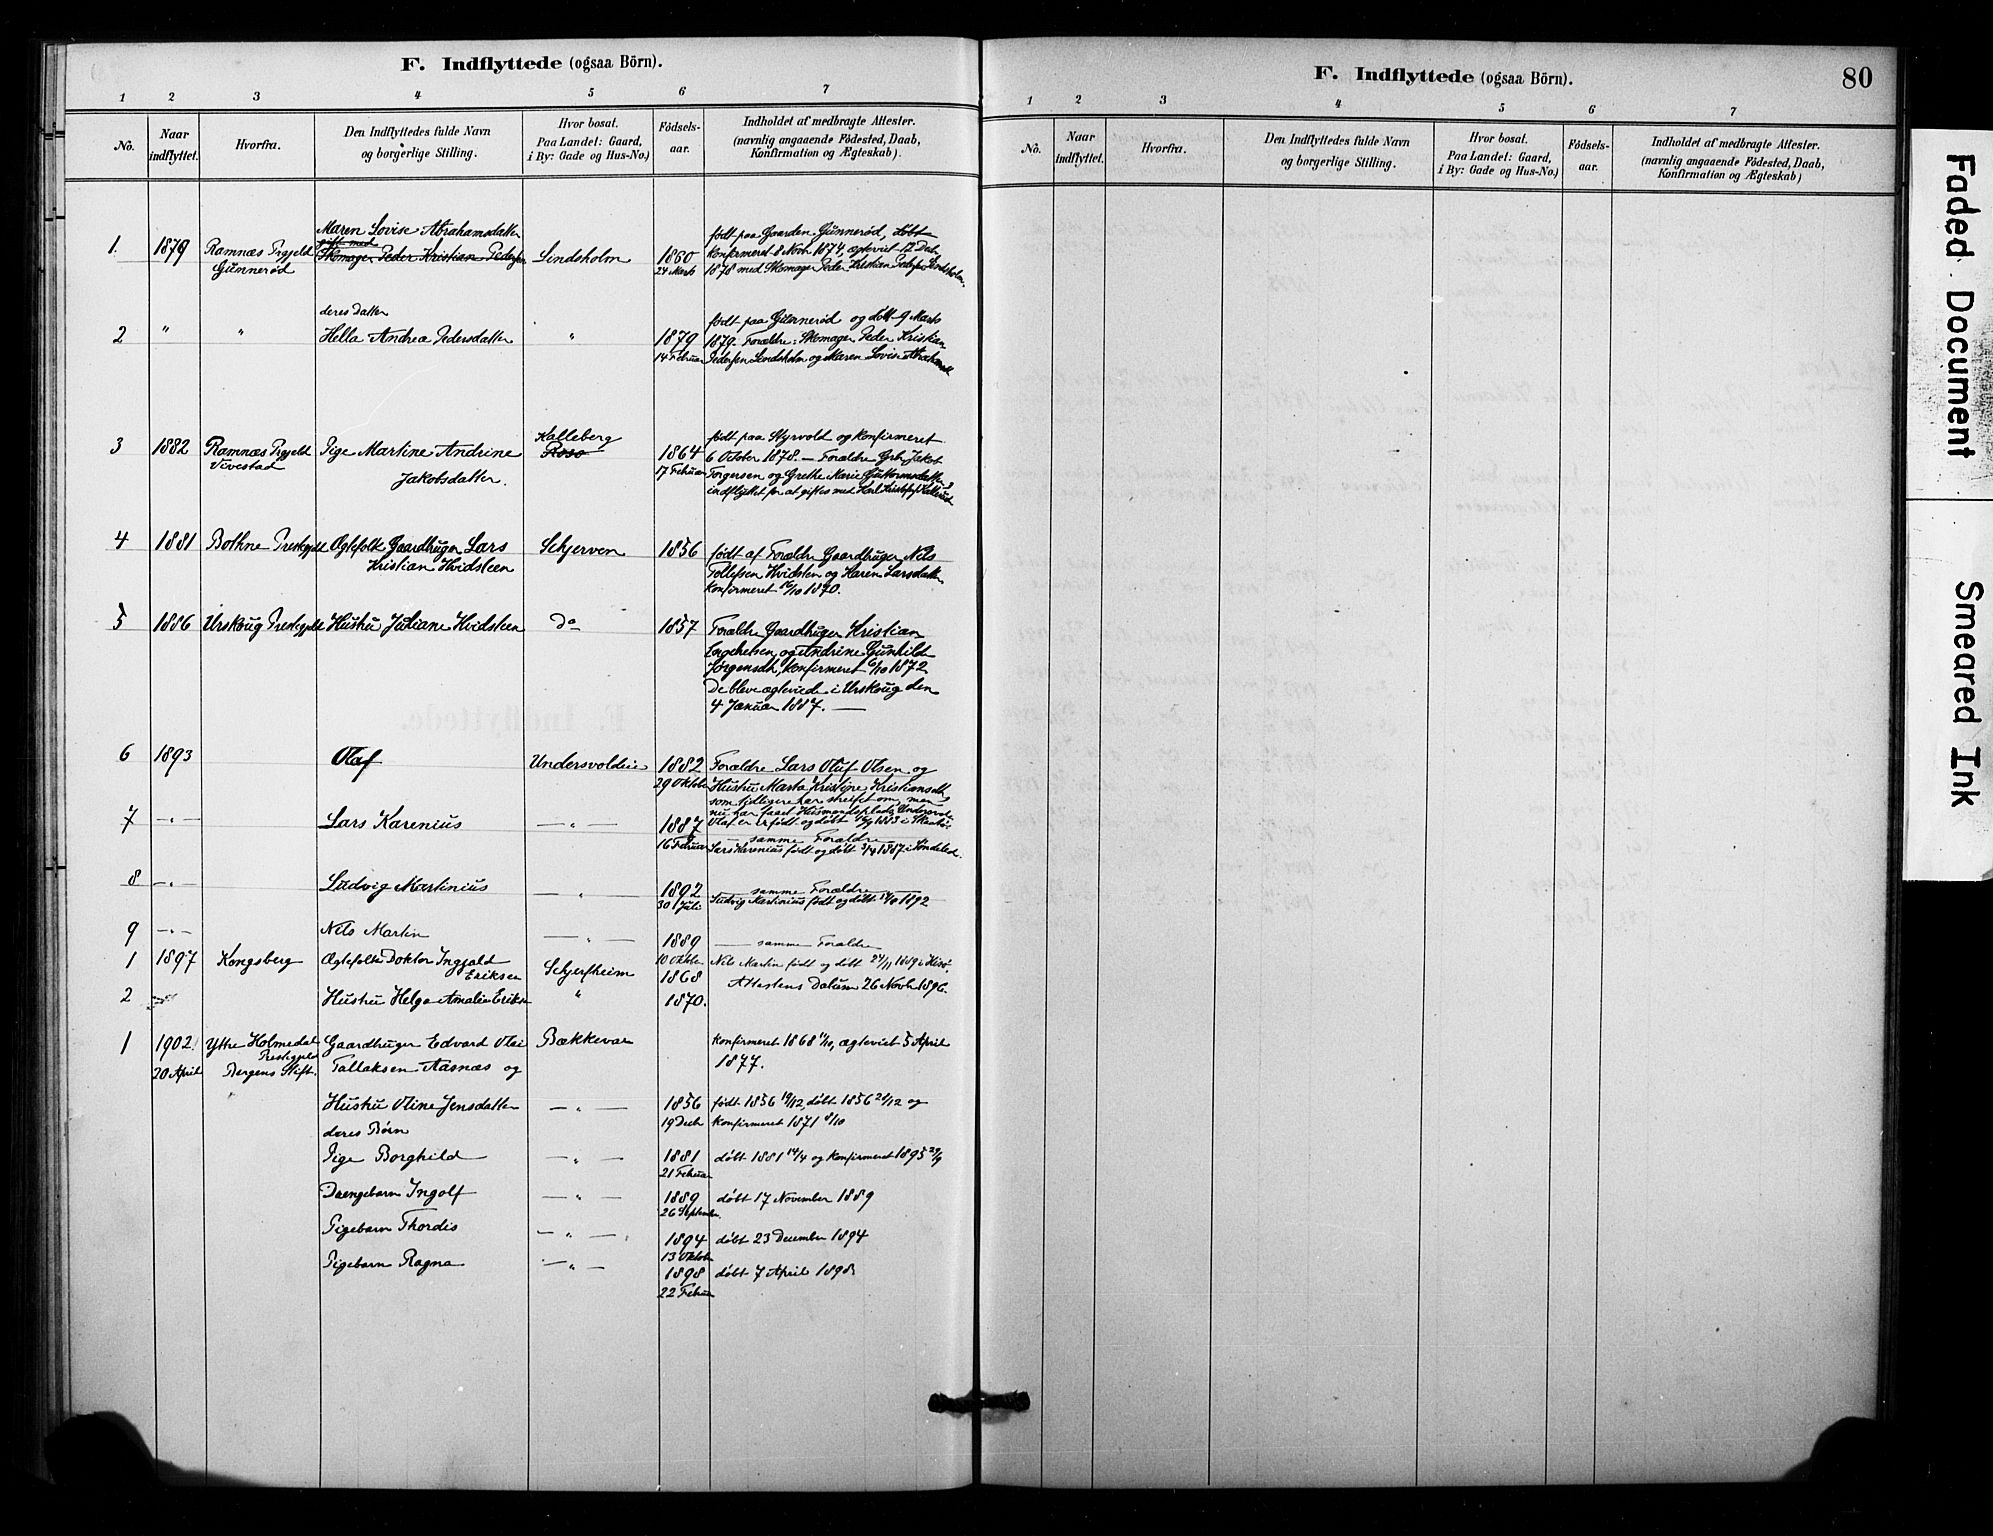 F. Indflyttede (ogsaa Börn).
1 2 3 4 5 6 7
No.
Naar indflyttet.
Hvorfra.
Den Indflyttedes fulde Navn
og borgerlige Stilling.
Hvor bosat.
Paa Landet: Gaard,
i By: Gade og Hus-No.)
Födsels-
aar.
Indholdet af medbragte Attester.
(navnlig angaaende Födested, Daab,
Konfirmation og Ægteskab).
1. 1879 Ramnæs Prgjeld
Gunnerød
Maren Lovise Abrahamsdatter
gift med
Skomager Peder Kristian Pedersen
Lindsholm
1860
24 Marts
født paa Gaarden Gunnerød, døbt
konfirmeret 8 Novb 1874, ægteviet 12 Dec
1878 med Skomager Peder Kristian Pedersen Lindsholm.
2 " "
deres Datter
Hella Andrea Pedersdatter
"
1879
14 Februar
født paa Gunnerød og døbt 9 Marts
1879. Forældre: Skomager Peder Kristian
Pedersen Lindsholm og Maren Lovise Abrahamsd
3 1882 Ramnæs Prgjeld
Vivestad
Pige Martine Andrine
Jakobsdatter.
Kalleberg
Roso
1864
17 Februar
født paa Styrvold og konfirmeret
6 October 1878. — Forældre Gbr. Jakob
Torgersen og Grethe Marie Guttormsdatter,
indflyttet for at giftes med Karl
4 1881 Bothne Prestegjeld
Ægtefolk Gaardbruger Lars
Kristian Hvidsteen
Schjerven
1856
født af Forældre Gaardbruger Nils
Tollefsen Hvidsten og Karen Larsdatter
konfirmeret 16/10 1870.
5 1886 Urskoug Prestegjeld
Hustru Juliane Hvidsteen
do
1857
Forældre Gaardbruger Kristian
Engebretsen og Andrine Gunhild
Jørgensdtr, konfirmeret 6/10 1872
De bleve ægteviede i Urskoug den
4 Januar 1887. —
6 1893
Olaf
Undersvoldeie
1882
29 Oktober
Forældre Lars Oluf Olsen og
Hustru Marta Kristine Kristiansdtr,
som tidligere har streifet om, men
nu har faaet Husmandsplads
Olaf er født og døbt 1883 i
7 — " —
Lars Karenius
— " —
1887
16 Februar
— samme Forældre —
Lars Karenius født og døbt 3/4 1887 i Søndeled.
8 — " —
Ludvig Martinius
— " —
1892
30 Juli
— samme Forældre —
Ludvig Martinius født og døbt 1892
9 — " —
Nils Martin
— " —
1889
10 Oktober
— samme Forældre
Nils Martin født og døbt 24/11 1889 i Hisø.
1 1897 Kongsberg
Ægtefolk Doktor Ingjald
Eriksen
Schjerfheim
1868
Attestens Datum 26 Novb 1896.
2 — " —
Hustru Helga Amalie Eriksen
"
1870.
1 1902.
20 April
Ytre Holmedal
Prestegjeld
Bergens Stift.
Gaardbruger Edvard Olai
Tallaksen Aasnæs og
Bækkevar
konfirmeret 1868 /10, ægteviet 5 April
1877.
Hustru Oline Jensdatter
— " —
1856
19 Decb
født 1856 19/12, døbt 1856 26/12 og
konfirmeret 1871 8/10
deres Børn
Pige Borghild
— " —
1881
21 Februar
døbt 1881 14/4 og konfirmeret 1895 29/9
Drengebarn Ingolf
— " —
1889
26 September
døbt 17 November 1889
Pigebarn Thordis
— " —
1894
13 Oktober
døbt 23 December 1894
Pigebarn Ragna
— " —
1898
22 Februar
døbt 7 April 1898
F. Indflyttede (ogsaa Börn).
80
1 2 3 4 5 6 7
No.
Naar
indflyttet.
Hvorfra.
Den Indflyttedes fulde Navn
og borgerlige Stilling.
Hvor bosat.
Paa Landet: Gaard,
i By: Gade og Hus-No.)
Födsels-
aar.
Indholdet af medbragte Attester.
(navnlig angaaende Födested, Daab,
Konfirmation og Ægteskab)
Faded Document
Smeared Ink